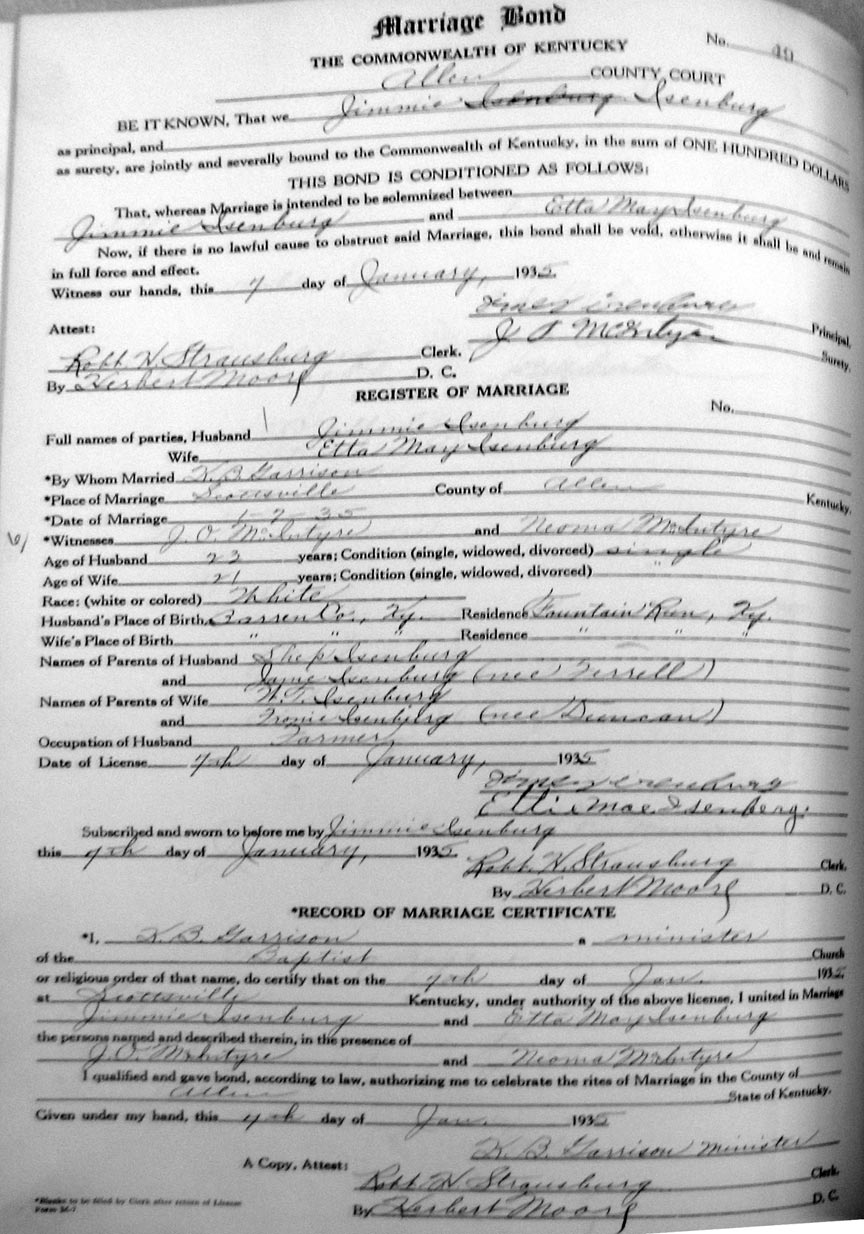 Marriage Bond
No. 49
THE COMMONWEALTH OF KENTUCKY
Allen COUNTY COURT
BE IT KNOWN, That we Jimmie Isenburg Isenburg
as principal, and
as surety, are jointly and severally bound to the Commonwealth of Kentucky, in the sum of ONE HUNDRED DOLLARS
THIS BOND IS CONDITIONED AS FOLLOWS:
That, whereas Marriage is intended to be solemnized between
Jimmie Isenburg and Etta May Isenburg
Now, if there is no lawful cause to obstruct said Marriage, this bond shall be void, otherwise it shall be and remain
in full force and effect.
Witness our hands, this 7 day of January, 1935.
Principal.
Attest: J O McIntyre
Surety.
Robt. H. Strausburg Clerk.
By Herbert Moore D. C.
REGISTER OF MARRIAGE
No.
Full names of parties, Husband Jimmie Isenburg
Wife Etta May Isenburg
*By Whom Married K. B. Garrison
*Place of Marriage Scottsville County of Allen Kentucky.
*Date of Marriage 1-7-35
*Witnesses J. O. McIntyre and Neoma McIntyre
Age of Husband 23 years; Condition (single, widowed, divorced) single
Age of Wife 21 years; Condition (single, widowed, divorced) "
Race: (white or colored) White
Husband's Place of Birth Barren Co., Ky. Residence Fountain Run, Ky.
Wife's Place of Birth " " " Residence " " "
Names of Parents of Husband Shep Isenburg
and Isenburg (nee Ferrell)
Names of Parents of Wife W. T. Isenburg
and Isenburg (nee Duncan)
Occupation of Husband Farmer
Date of License 7th day of January, 1935
Etti Mae Isenberg.
Subscribed and sworn to before me by Jimmie Isenburg
this 7th day of January, 1935.
Robt. H. Strausburg Clerk.
By Herbert Moore D. C.
*RECORD OF MARRIAGE CERTIFICATE
*I, K. B. Garrison a minister
of the Baptist Church
or religious order of that name, do certify that on the 7th day of Jan. 1935
at Scottsville Kentucky, under authority of the above license, I united in Marriage
Jimmie Isenburg and Etta May Isenburg
the persons named and described therein, in the presence of
J. O. McIntyre and Neoma McIntyre
I qualified and gave bond, according to law, authorizing me to celebrate the rites of Marriage in the County of
Allen State of Kentucky.
Given under my hand, this 7th day of Jan. 1935
K. B. Garrison minister
A Copy, Attest: Robt H Strausburg Clerk.
By Herbert Moore D. C.
*Blanks to be filled by Clerk after return of License